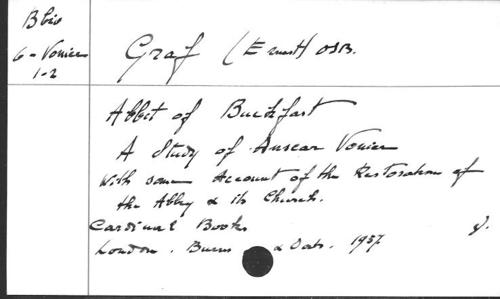 B bis
6 - Vonier
1-2
Graf (Ernest) OSB.
Abbot of Buckfast
A Study of Anscar Vonier
with some Account of the Restoration of
the Abbey & its Church.
Cardinal Books
London. Burns & Oats. 1957